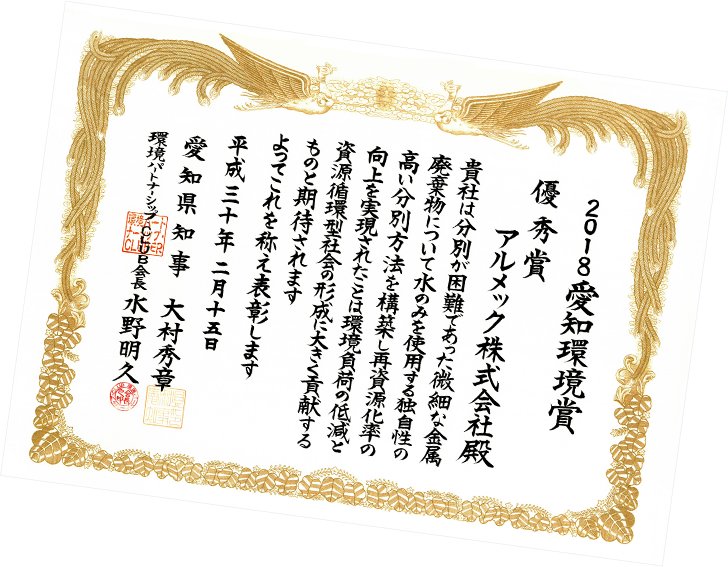 2018愛知環境賞
優秀賞
アルメック株式会社殿
貴社は分別が困難であった微細な金属
廃棄物について水のみを使用する独自性の
高い分別方法を構築し再資源化率の
向上を実現されたことは環境負荷の低減と
資源循環型社会の形成に大きく貢献する
ものと期待されます
よってこれを称え表彰します
平成三十年二月十五日
愛知県知事 大村秀章
環境パートナーシップCLUB会長 水野明久